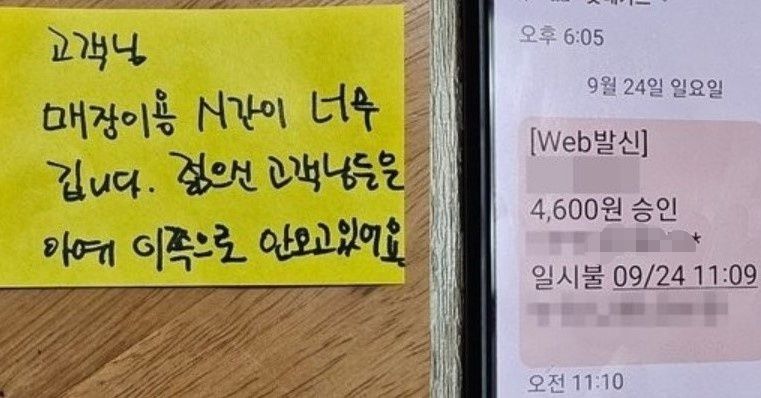 고객님
매장이용 시간이 너무
깁니다. 젊으신 고객님들은
아예 이쪽으로 안오고있어요
오후 6:05
9월 24일 일요일
[Web발신]
4,600원 승인
*
일시불 09/24 11:09
오전 11:10